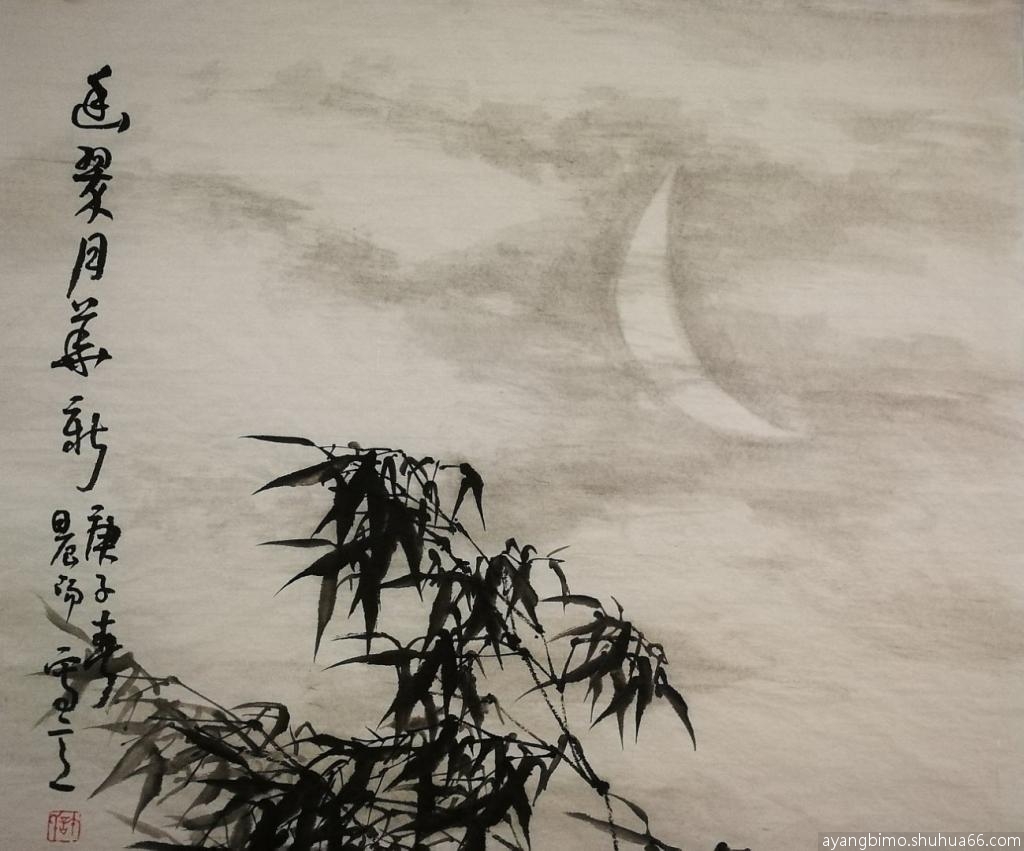 幽翠月華新
庚子春
晨陽寫之
ayangbimo.shuhua66.com